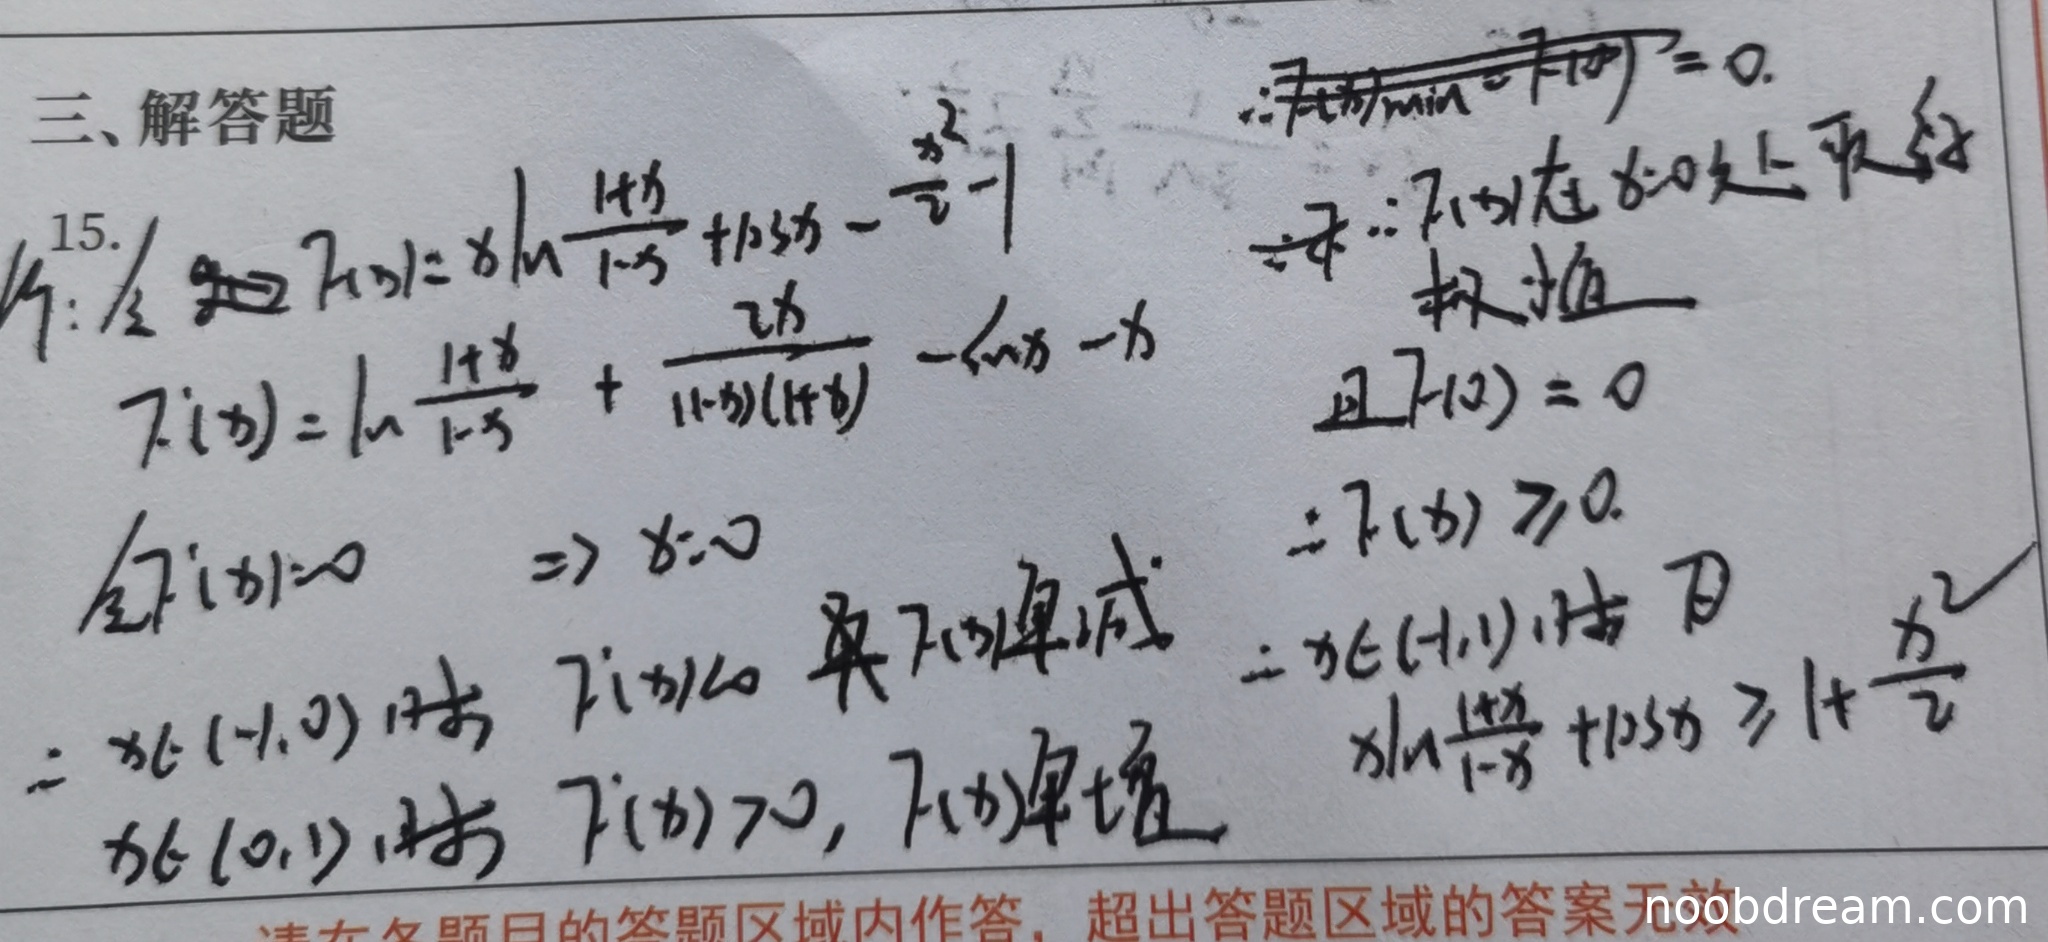 三、解答题
15.
令 F(x)=xln\frac{1+x}{1-x}+cosx-\frac{x^2}{2}-1
F'(x)=ln\frac{1+x}{1-x}+\frac{2x}{(1-x)(1+x)}-sinx-x
令F'(x)=0 => x=0
∴ x∈(-1,0)时 F'(x)<0 F(x)单减
x∈(0,1)时 F'(x)>0, F(x)单增
∴F(x)min=F(0)=0.
∴F(x)在x=0处上取
极值
且F(0)=0
∴F(x)≥0.
∴x∈(-1,1)时
xln\frac{1+x}{1-x}+cosx≥1+\frac{x^2}{2}
请在各题目的答题区域内作答，超出答题区域的答案无效
noobdream.com